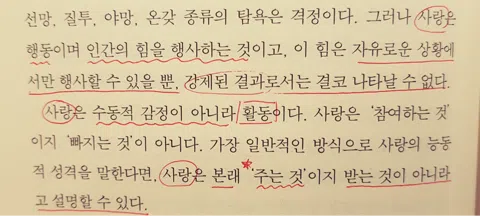 선망, 질투, 야망, 온갖 종류의 탐욕은 격정이다. 그러나 사랑은
행동이며 인간의 힘을 행사하는 것이고, 이 힘은 자유로운 상황에
서만 행사할 수 있을 뿐, 강제된 결과로서는 결코 나타날 수 없다.
사랑은 수동적 감정이 아니라 활동이다. 사랑은 ‘참여하는 것’
이지 ‘빠지는 것’이 아니다. 가장 일반적인 방식으로 사랑의 능동
적 성격을 말한다면, 사랑은 본래 ‘주는 것’이지 받는 것이 아니라
고 설명할 수 있다.